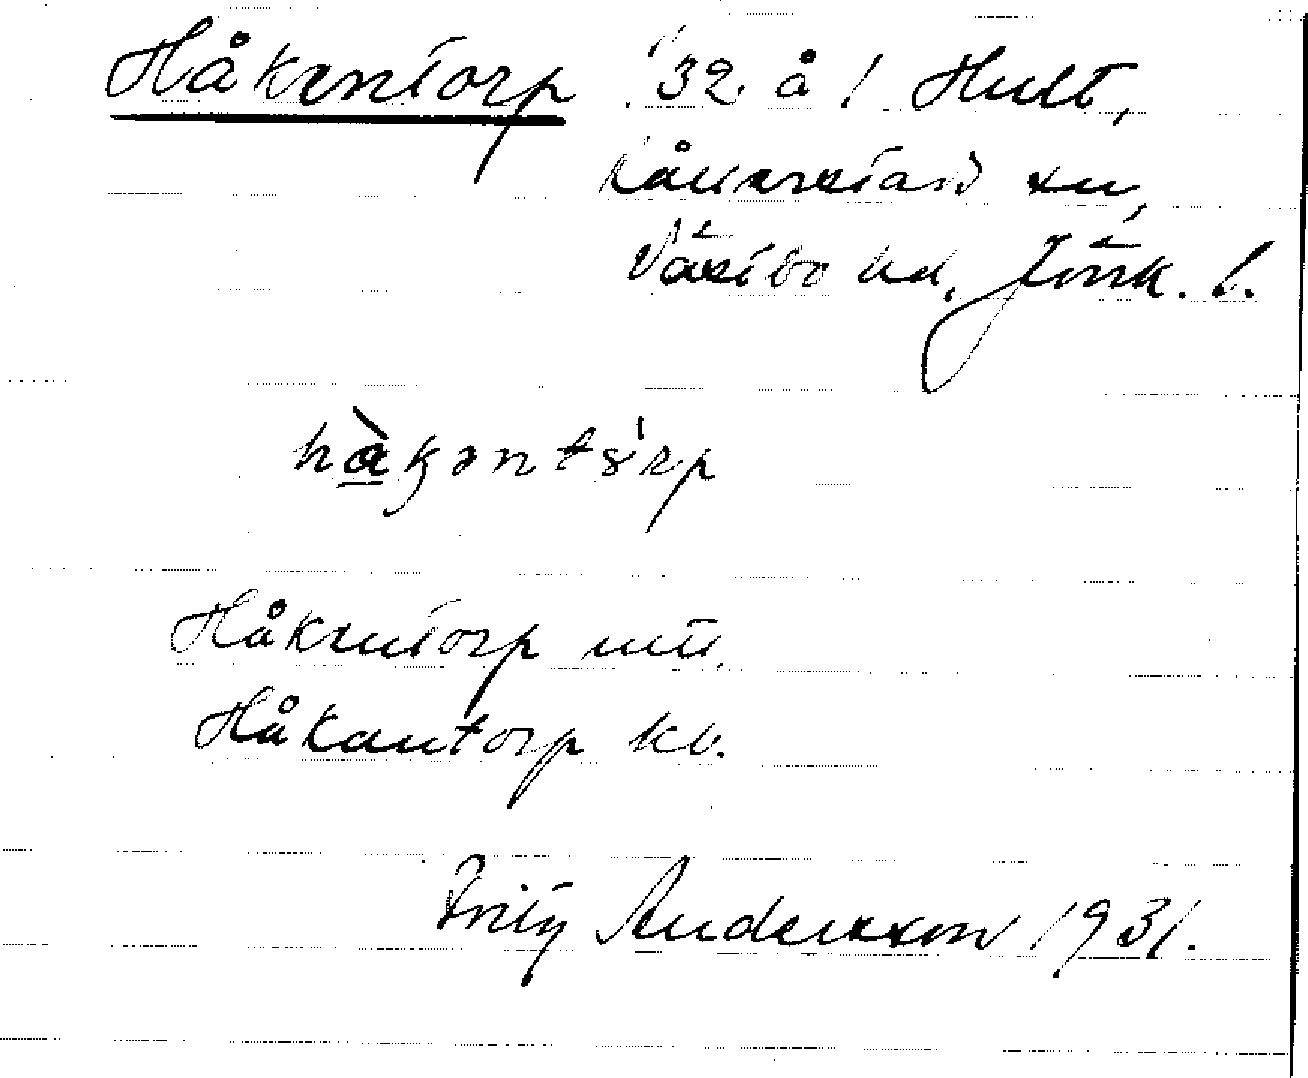 Håkentorp 1/32 å 1 Hult,
Kållerstad sn,
Västbo hd, Jönk. l.
hàkəntórp
Håkentorp utt.
Håkantorp kb.
Fritz Andersson 1931.